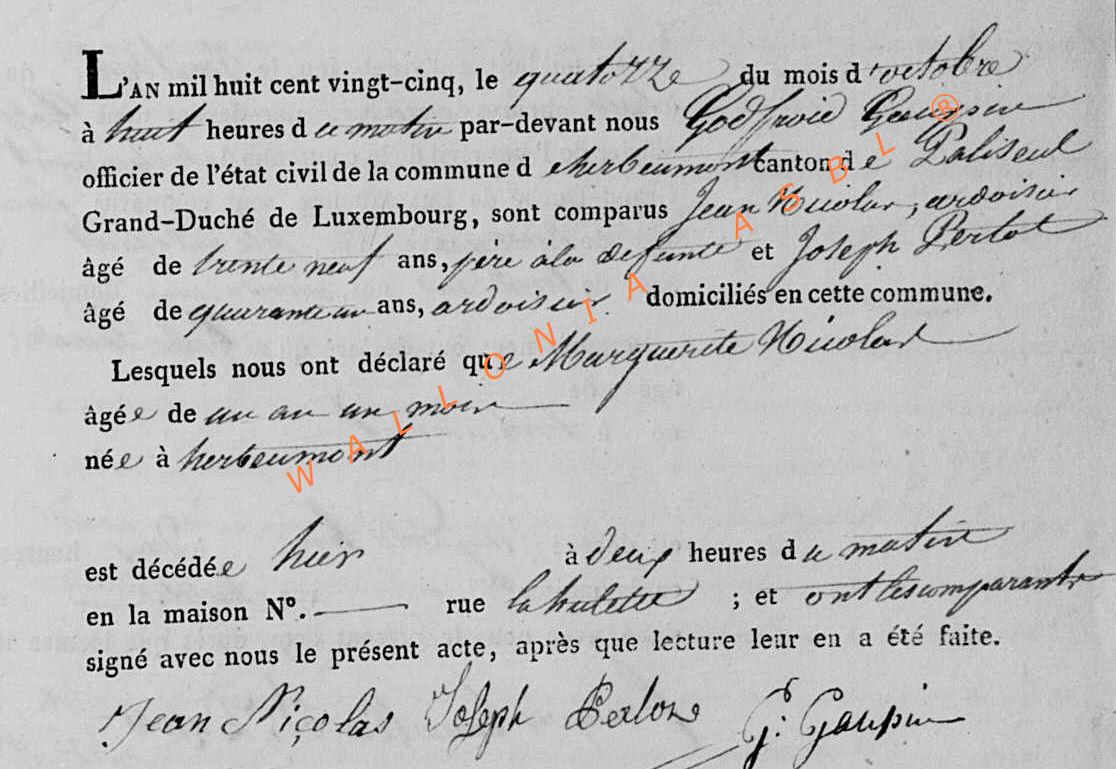 L'AN mil huit cent vingt-cinq, le quatorze du mois d'octobre
à huit heures du matin par-devant nous Godfroid Gaupin
officier de l'état civil de la commune d'herbeumont canton de Paliseul
Grand-Duché de Luxembourg, sont comparus Jean Nicolas, ardoisier
âgé de trente neuf ans, père à la defunte et Joseph Perlot
âgé de quarante un ans, ardoisier domiciliés en cette commune.
Lesquels nous ont déclaré que Marguerite Nicolas
âgée de un an un mois
née à herbeumont
est décédée hier à deux heures du matin
en la maison N°. — rue la hulette ; et ont les comparants
signé avec nous le présent acte, après que lecture leur en a été faite.
Jean Niçolas Joseph Perlot G: Gaupin
WALLONIA ASBL ®